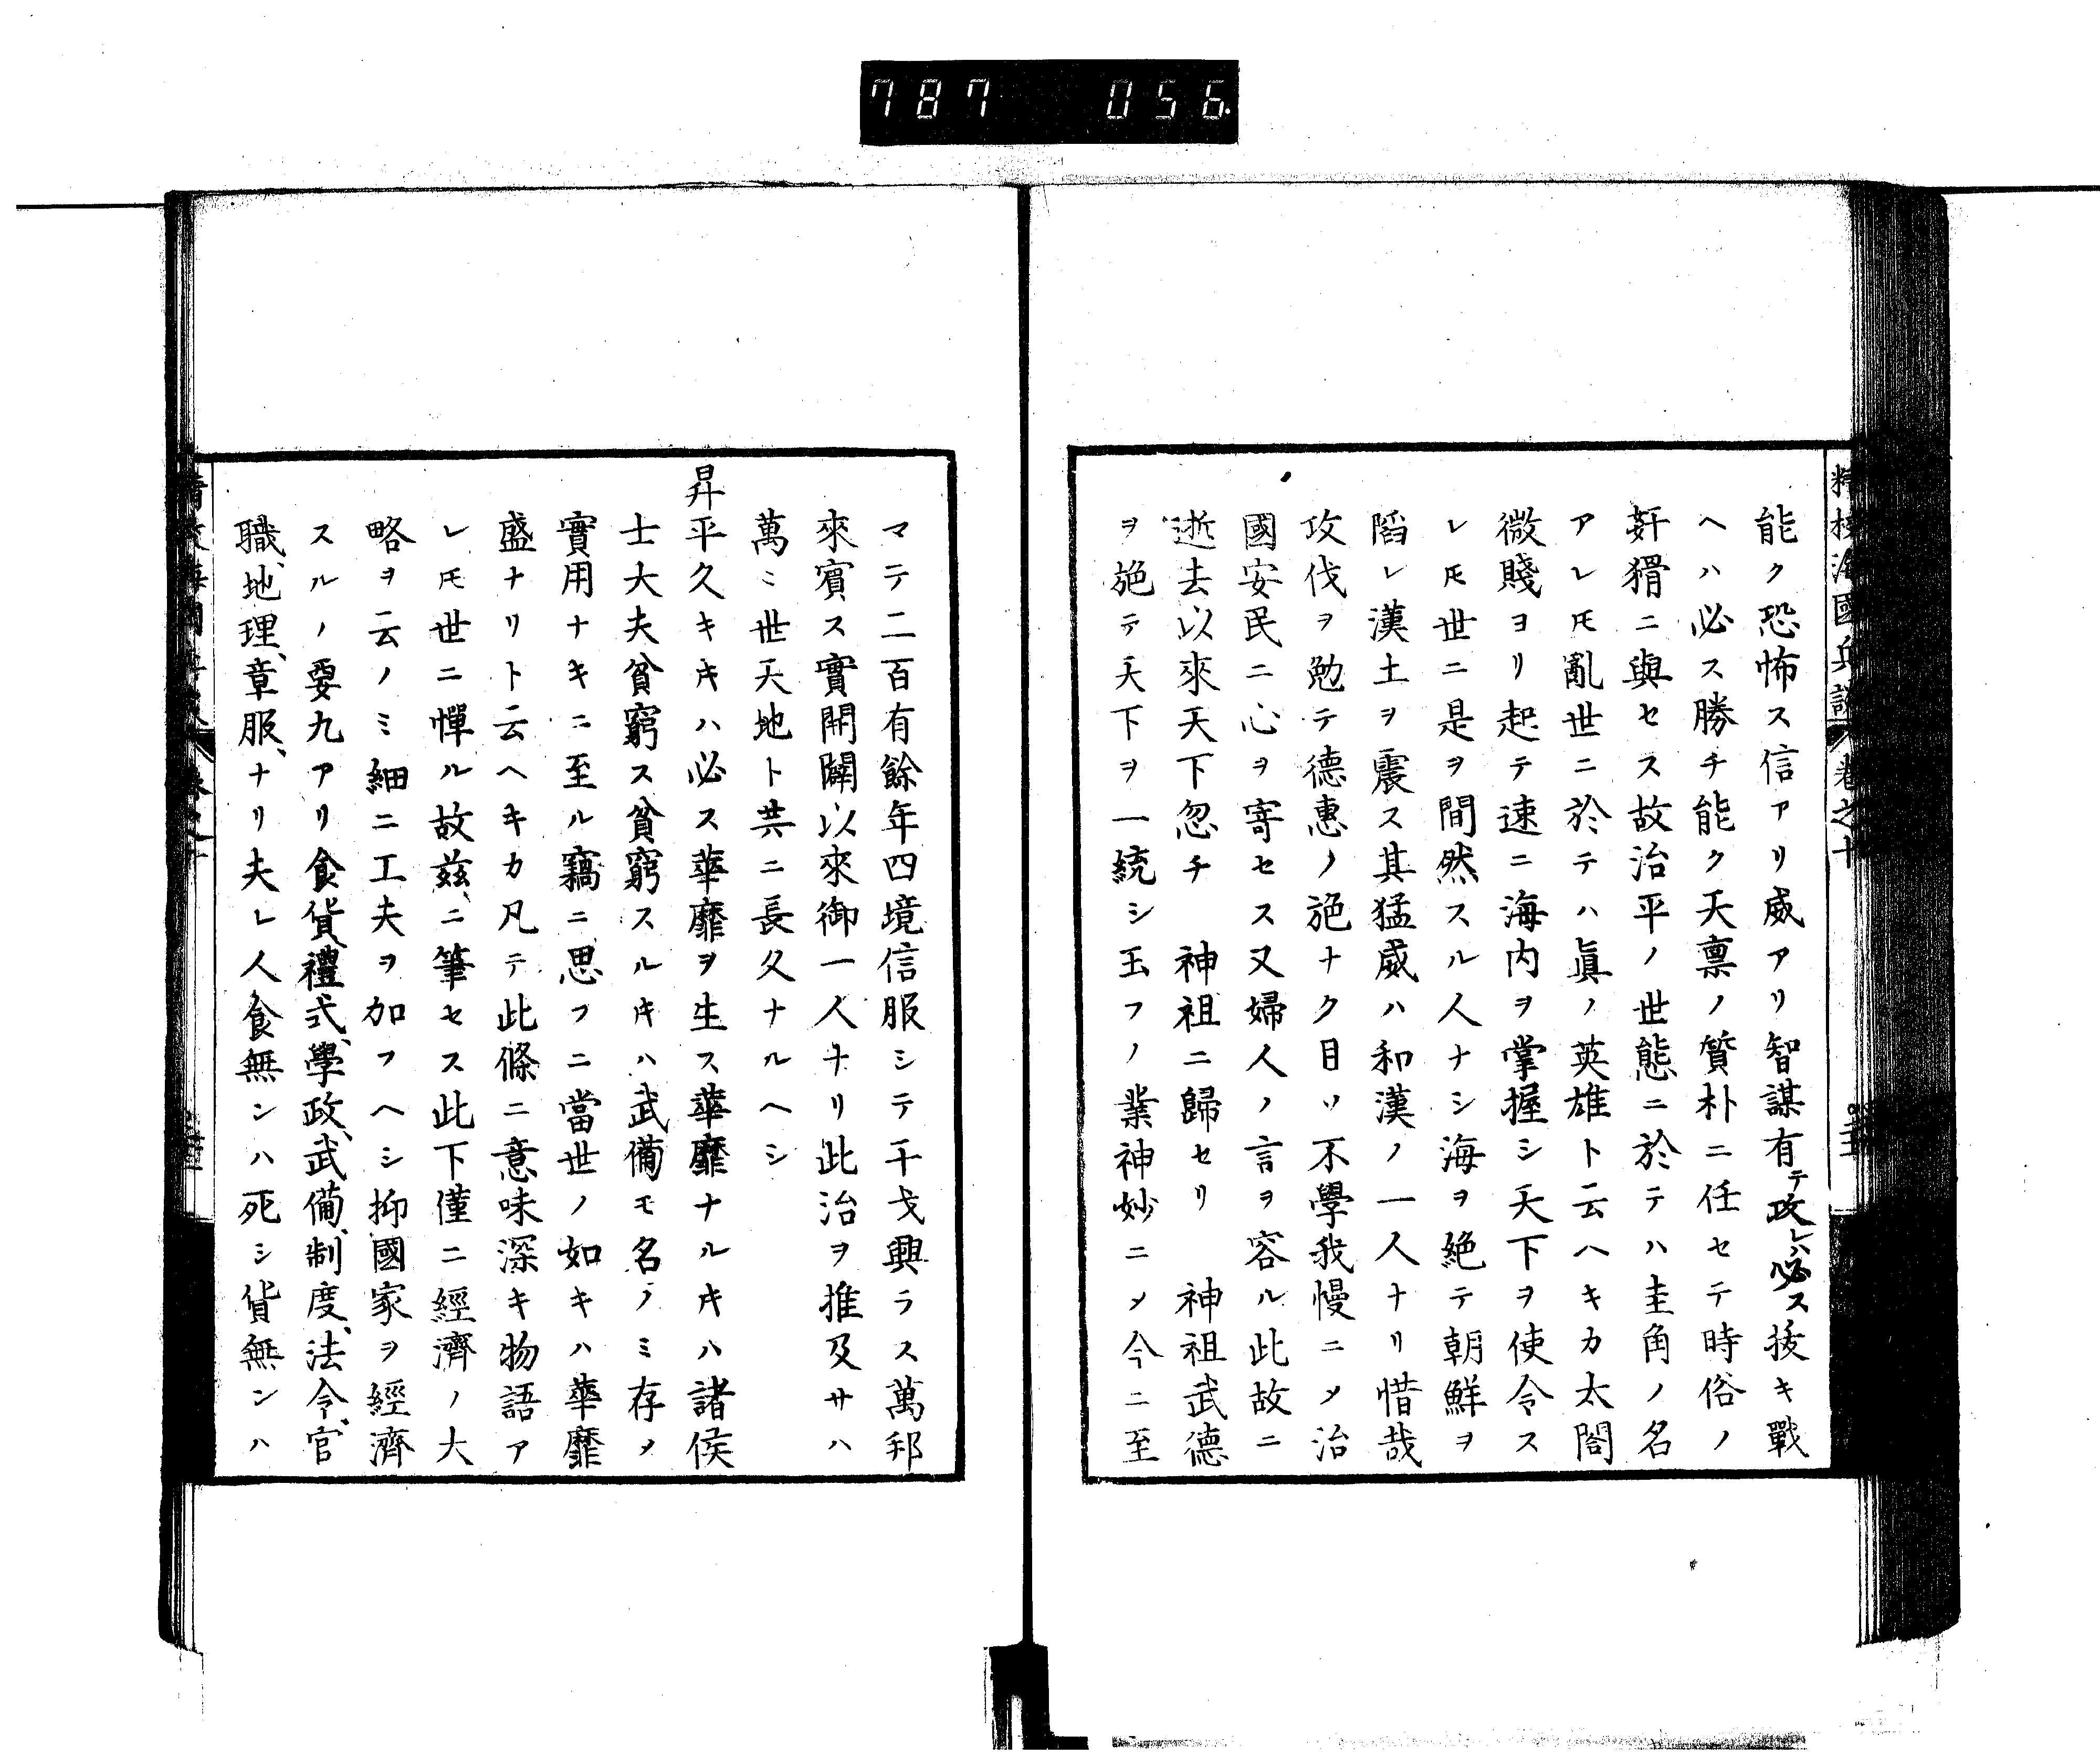 787 056
精校海國兵談 卷之十
能ク恐怖ス信アリ威アリ智謀有テ攻レハ必ス拔キ戰
ヘハ必ス勝チ能ク天禀ノ質朴ニ任セテ時俗ノ
姧猾ニ與セス故治平ノ世態ニ於テハ圭角ノ名
アレ𪜈亂世ニ於テハ眞ノ英雄ト云ヘキカ太閤
微賤ヨリ起テ速ニ海内ヲ掌握シ天下ヲ使令ス
レ𪜈世ニ是ヲ間然スル人ナシ海ヲ絶テ朝鮮ヲ
䧟レ漢土ヲ震ス其猛威ハ和漢ノ一人ナリ惜哉
攻伐ヲ勉テ德惠ノ施ナク目ツ不學我慢ニ〆治
國安民ニ心ヲ寄セス又婦人ノ言ヲ容ル此故ニ
逝去以來天下忽チ 神祖ニ歸セリ 神祖武德
ヲ施テ天下ヲ一統シ玉フノ業神妙ニ〆今ニ至
マテ二百有餘年四境信服シテ干戈興ラス萬邦
來賓ス實開闢以來御一人ナリ此治ヲ推及サハ
萬〻世天地ト共ニ長久ナルヘシ
昇平久キ𪜈ハ必ス華靡ヲ生ス華靡ナル𪜈ハ諸侯
士大夫貧窮ス貧窮スル𪜈ハ武備モ名ノミ存〆
實用ナキニ至ル竊ニ思フニ當世ノ如キハ華靡
盛ナリト云ヘキカ凡テ此條ニ意味深キ物語ア
レ𪜈世ニ憚ル故茲ニ筆セス此下僅ニ經濟ノ大
略ヲ云ノミ細ニ工夫ヲ加フヘシ抑國家ヲ經濟
スルノ要九アリ食貨、禮式、學政、武備、制度、法令、官
職、地理、章服、ナリ夫レ人食無ンハ死シ貨無ンハ